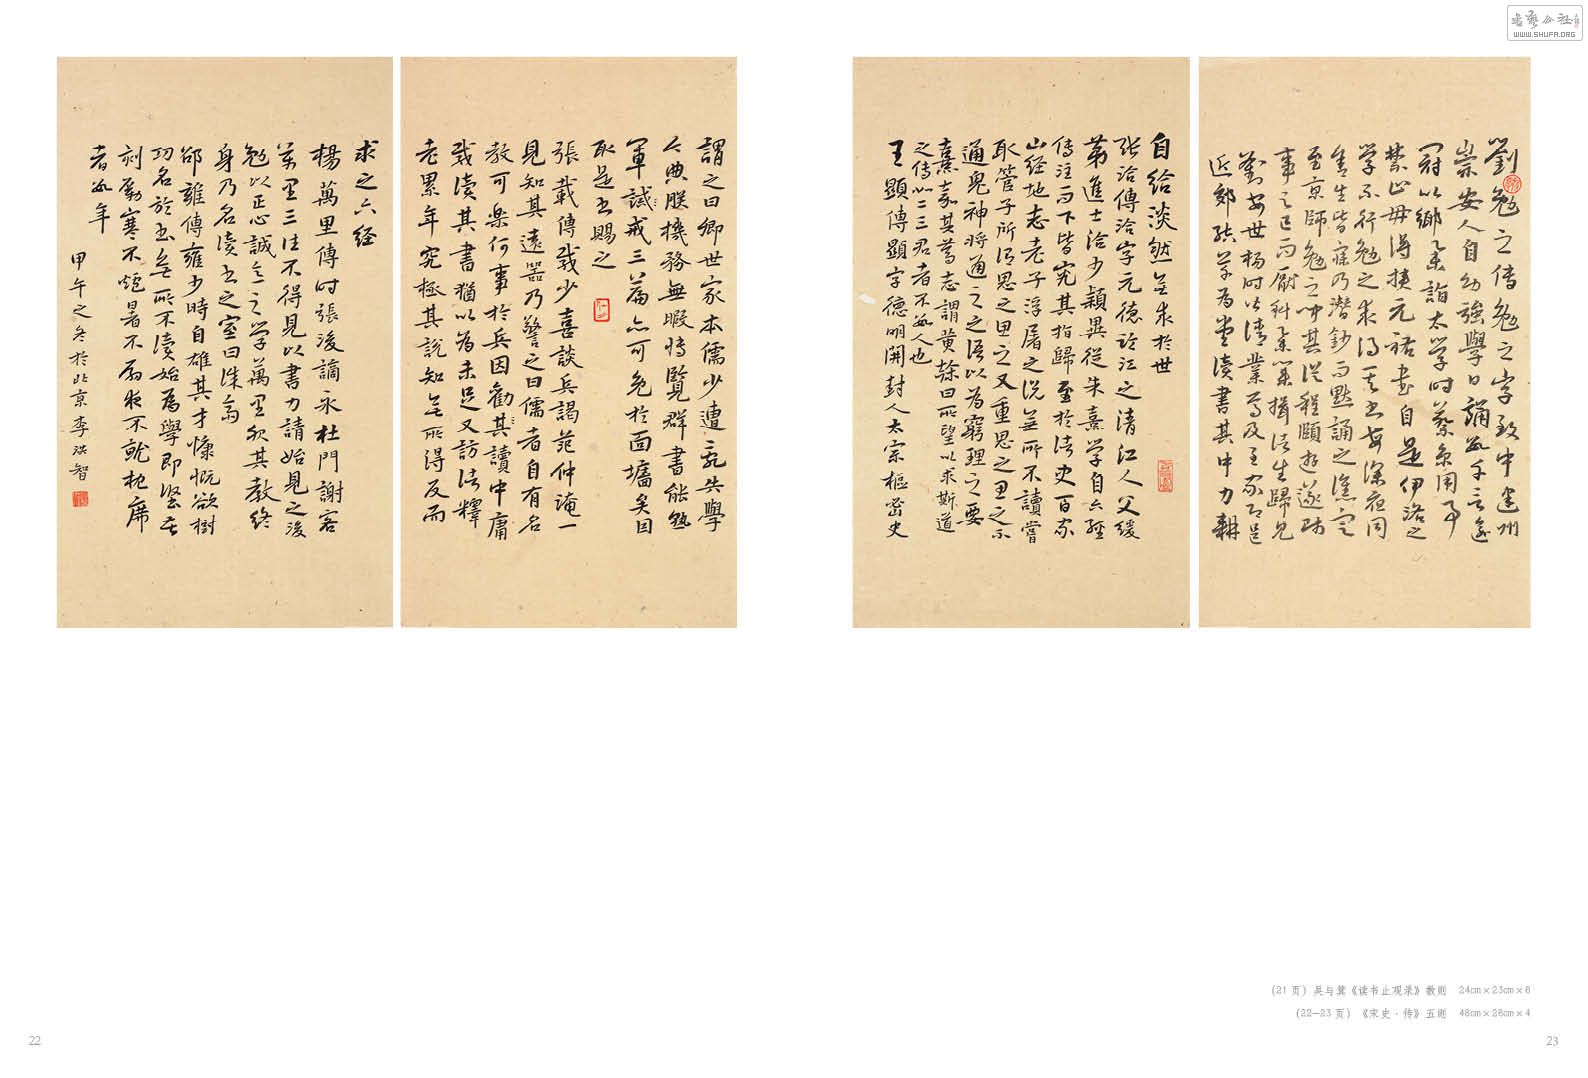 WWW.SHUFA.ORG
劉勉之傳勉之字致中建州
崇安人自幼強學日誦數千言逾
冠以鄉舉詣太學時蔡京用事
禁止毋得挾元祐書自是伊洛之
學不行勉之求得其書每深夜同
舍生皆寐乃潛鈔而默誦之譙定
至京師勉之聞其從程頤遊遂師
事之已而厭科舉業揖諸生歸見
劉安世楊時皆請業焉及至家即邑
近郊結草為堂讀書其中力耕
自給淡然無求於世
張洽傳洽字元德臨江之清江人父緩
第進士洽少穎異從朱熹學自六經
傳注而下皆究其指歸至於諸史百家
山經地志老子浮屠之說無所不讀嘗
取管子所謂思之思之又重思之思之不
通鬼神將通之之語以為窮理之要
熹嘉其篤志謂黃榦曰所望以求斯道
之傳如二三君者不數人也
王顯傳顯字德明開封人太宗樞密史
謂之曰卿世家本儒少遭亂失學
今典朕機務無暇博覽群書能熟
軍試戒三篇亦可免於面牆矣因
取是書賜之
張載傳載少喜談兵謁范仲淹一
見知其遠器乃警之曰儒者自有名
教可樂何事於兵因勸其讀中庸
載讀其書猶以為未足又訪諸釋
老累年究極其說知無所得反而
求之六經
楊萬里傳時張浚謫永杜門謝客
萬里三往不得見以書力請始見之浚
勉以正心誠意之學萬里服其教終
身乃名讀書之室曰誠齋
邵雍傳雍少時自雄其才慷慨欲樹
功名於書無所不讀始為學即堅苦
刻勵寒不爐暑不扇夜不就枕席
者數年
甲午之冬於北京李洪智
(21 页) 吴与弼《读书止观录》数则 24cm×23cm×6
(22—23 页) 《宋史·传》五则 48cm×28cm×4
22
23